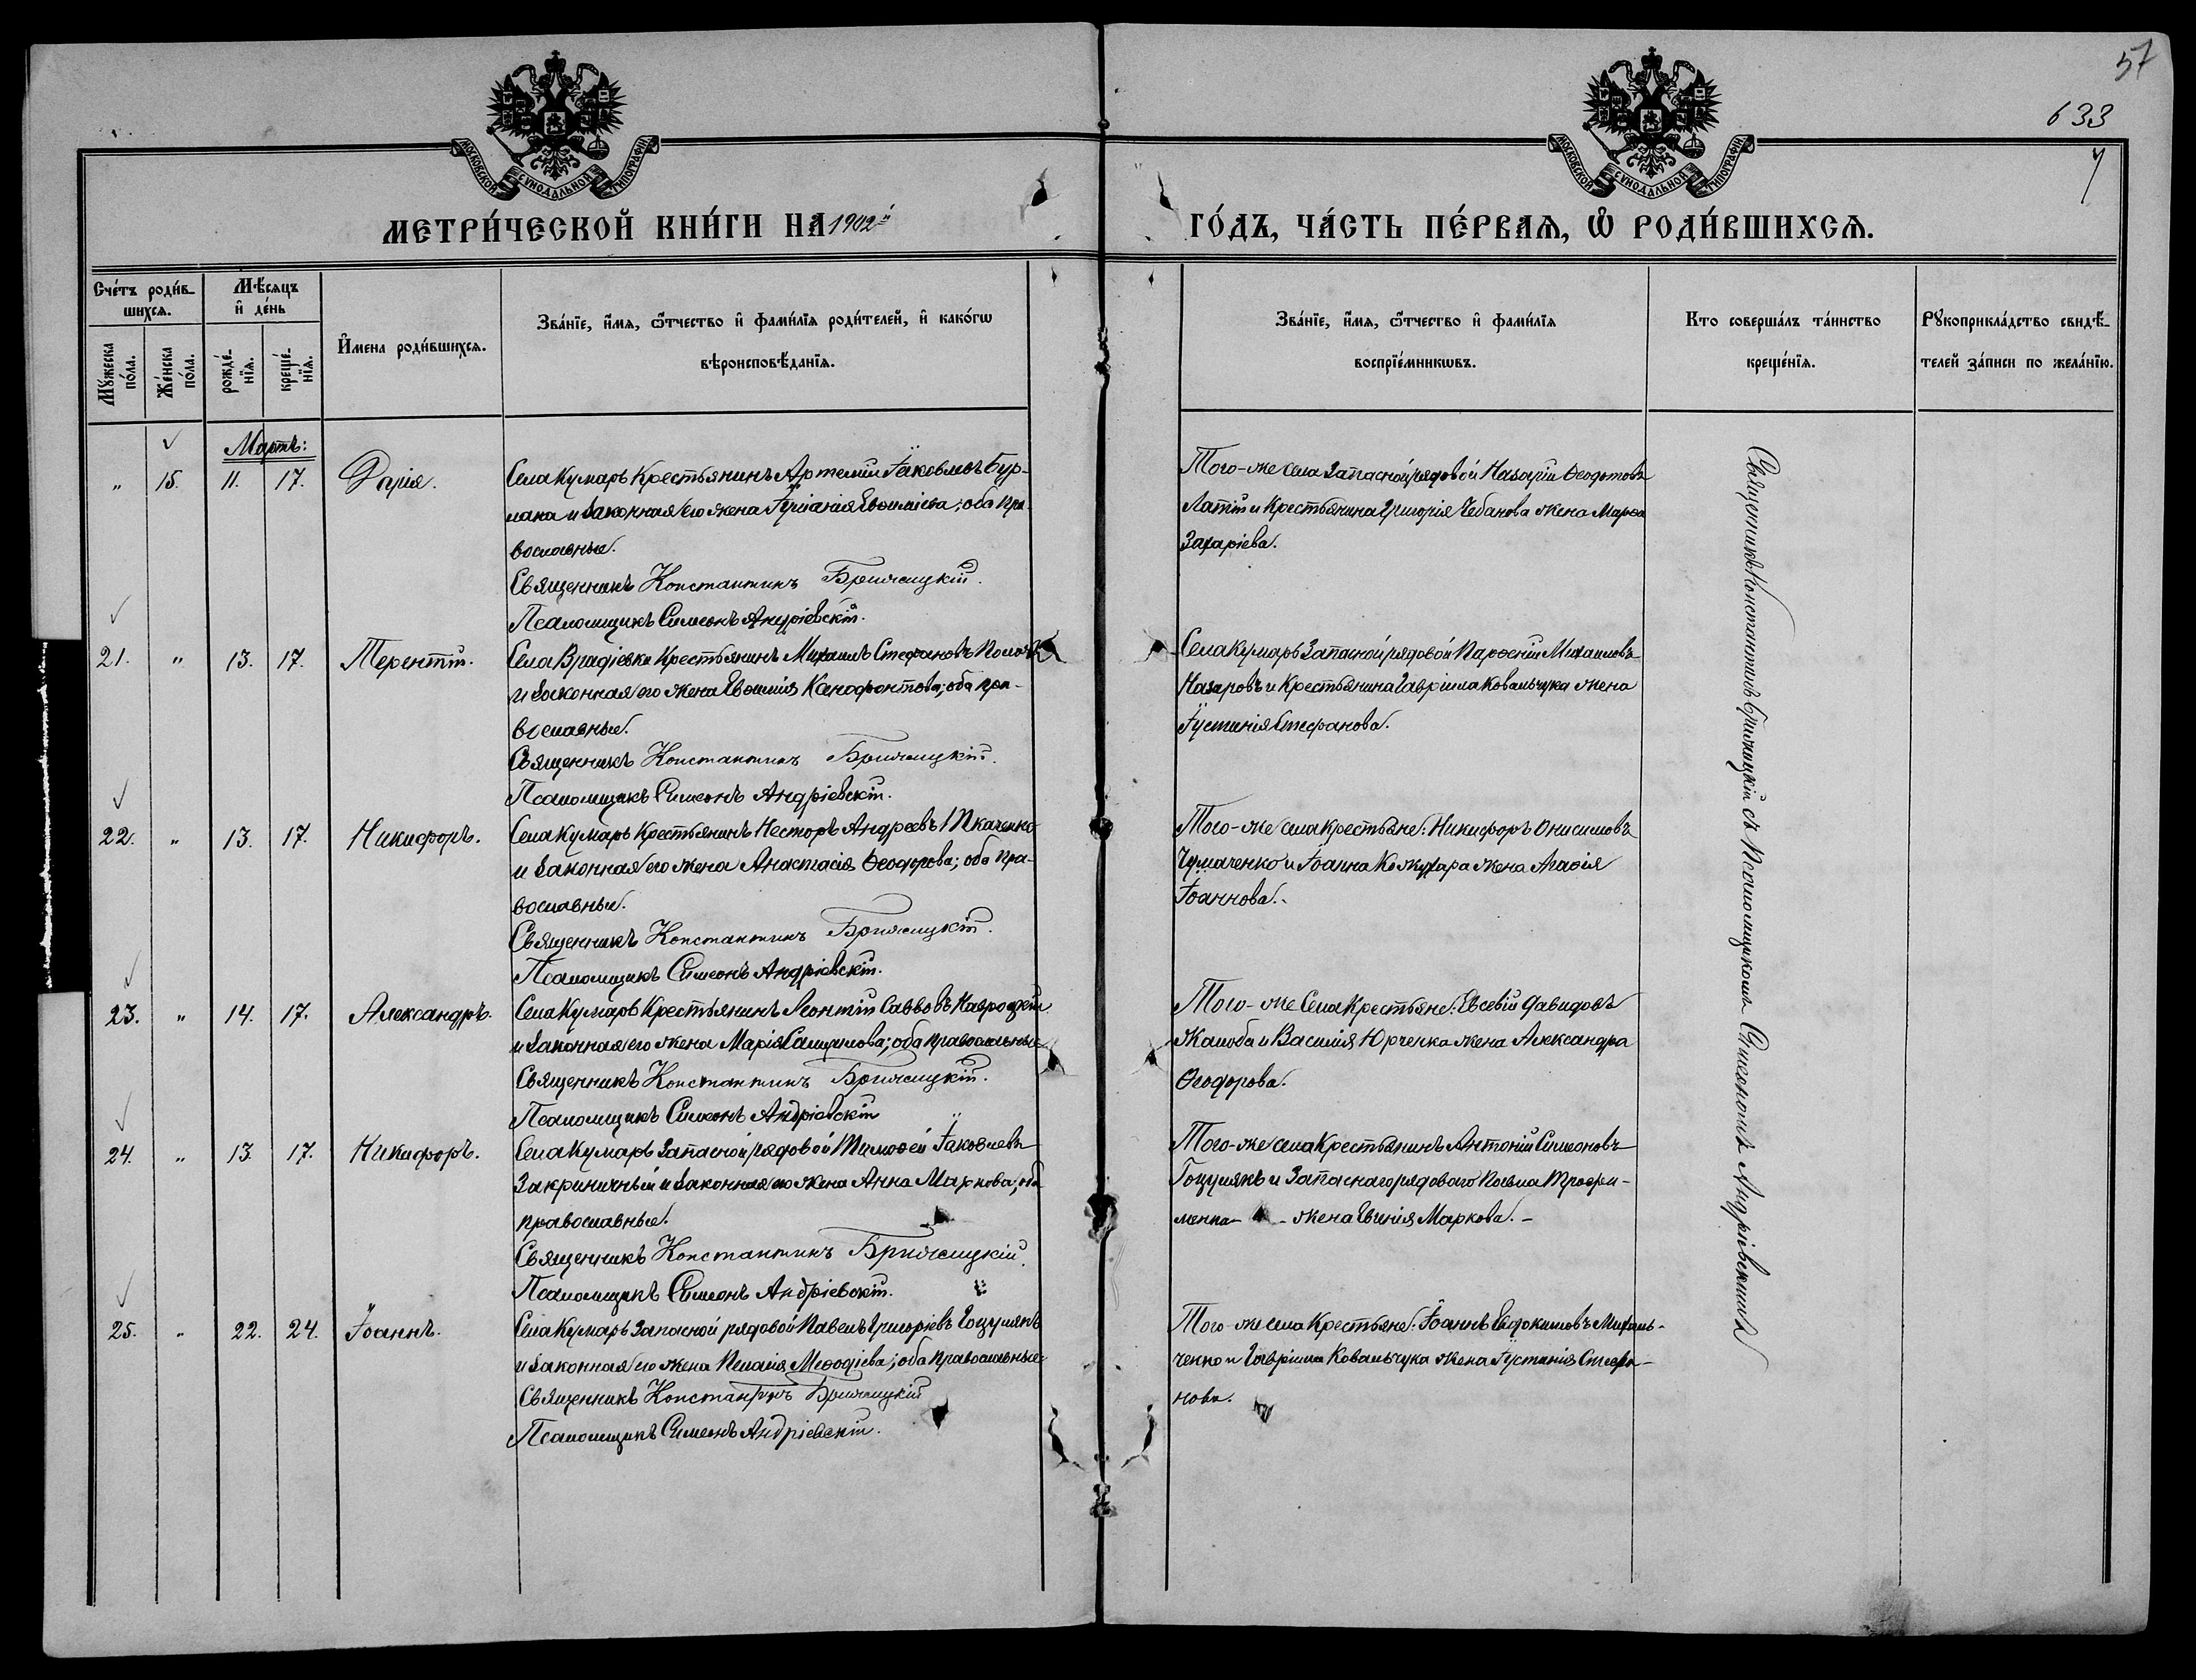 57
633
7
МОСКОВСКОЙ СѴНОДАЛЬНОЙ ТИПОГРАФІИ
МОСКОВСКОЙ СѴНОДАЛЬНОЙ ТИПОГРАФІИ
МЕТРИ́ЧЕСКОЙ КНИ́ГИ НА 1902й
ГО́ДЪ, ЧА́СТЬ ПЕ́РВАѦ, Ѡ҆ РОДИ́ВШИХСѦ.
Сче́тъ роди́в-
шихсѧ.
Мꙋ́жеска по́ла.
Же́нска по́ла.
Мѣ́сѧцъ
и҆ де́нь
рожде́-нїѧ.
креще́-нїѧ.
И҆мена роди́вшихсѧ.
Зва́нїе, и҆́мѧ, ѻ҆́тчество и҆ фами́лїѧ роди́телей, и҆ како́гѡ
вѣроисповѣ́данїѧ.
Зва́нїе, и҆́мѧ, ѻ҆́тчество и҆ фами́лїѧ
воспрїе́мникѡвъ.
Кто соверша́лъ та́инство
креще́нїѧ.
Рꙋкоприкла́дство свидѣ́-
телей за́писи по жела́нїю.
Мартъ:
" 15. 11. 17. Дарія.
Села Кумаръ Крестьянинъ Артемій Іаковлевъ Бур-
лака и законная его жена Іуліанія Евѳиміева; оба пра-
вославные.
Священникъ Константинъ
Псаломщикъ Симеонъ Андріевскій.
Того-же села запасной рядовой Назарій Ѳеодотовъ
Латій и Крестьянина Григорія Чебанова жена Марѳа
Захаріева.
21. " 13. 17. Терентій.
Села Врадіевки Крестьянинъ Михаилъ Стефановъ
и законная его жена Евѳимія Ксенофонтова; оба пра-
вославные.
Священникъ Константинъ
Псаломщикъ Симеонъ Андріевскій.
Села Кумаръ Запасной рядовой Парѳеній Михаиловъ
Назаровъ и Крестьянина Гавріила Ковальчука жена
Іустинія Стефанова.
22. " 13. 17. Никифоръ.
Села Кумаръ Крестьянинъ Несторъ Андреевъ Ткаченко
и законная его жена Анастасія Ѳеодорова; оба пра-
вославные.
Священникъ Константинъ
Псаломщикъ Симеонъ Андріевскій.
Того-же села Крестьяне: Никифоръ Онисимовъ
Чумаченко и Іоанна Кожухара жена Агаѳія
Іоаннова.
23. " 14. 17. Александръ.
Села Кумаръ Крестьянинъ Леонтій Савовъ Навроцкій
и законная его жена Марія Самуилова; оба православные
Священникъ Константинъ
Псаломщикъ Симеонъ Андріевскій
Того-же Села Крестьяне: Евсевій Давидовъ
Жалоба и Василія Юрченка жена Александра
Ѳеодорова.
24. " 13. 17. Никифоръ.
Села Кумаръ Запасной рядовой Тимоѳей Іаковлевъ
Закриничный и законная его жена Анна Маркова; оба
православные.
Священникъ Константинъ
Псаломщикъ Симеонъ Андріевскій.
Того-же села Крестьянинъ Антоній Симеоновъ
Гоцулякъ и Запаснаго рядоваго Павла Трофи-
менка - жена Евгенія Маркова. -
25. " 22. 24. Іоаннъ.
Села Кумаръ Запасной рядовой Павелъ Григоріевъ Гоцулякъ
и законная его жена Пелагія Меѳодіева; оба православные
Священникъ Константинъ
Псаломщикъ Симеонъ Андріевскій.
Того-же села Крестьяне: Іоаннъ Евдокимовъ Михаль-
ченко и Гавріила Ковальчука жена Іустинія Стефа-
нова.
Священникъ Константинъ съ Псаломщикомъ Симеономъ Андріевскимъ